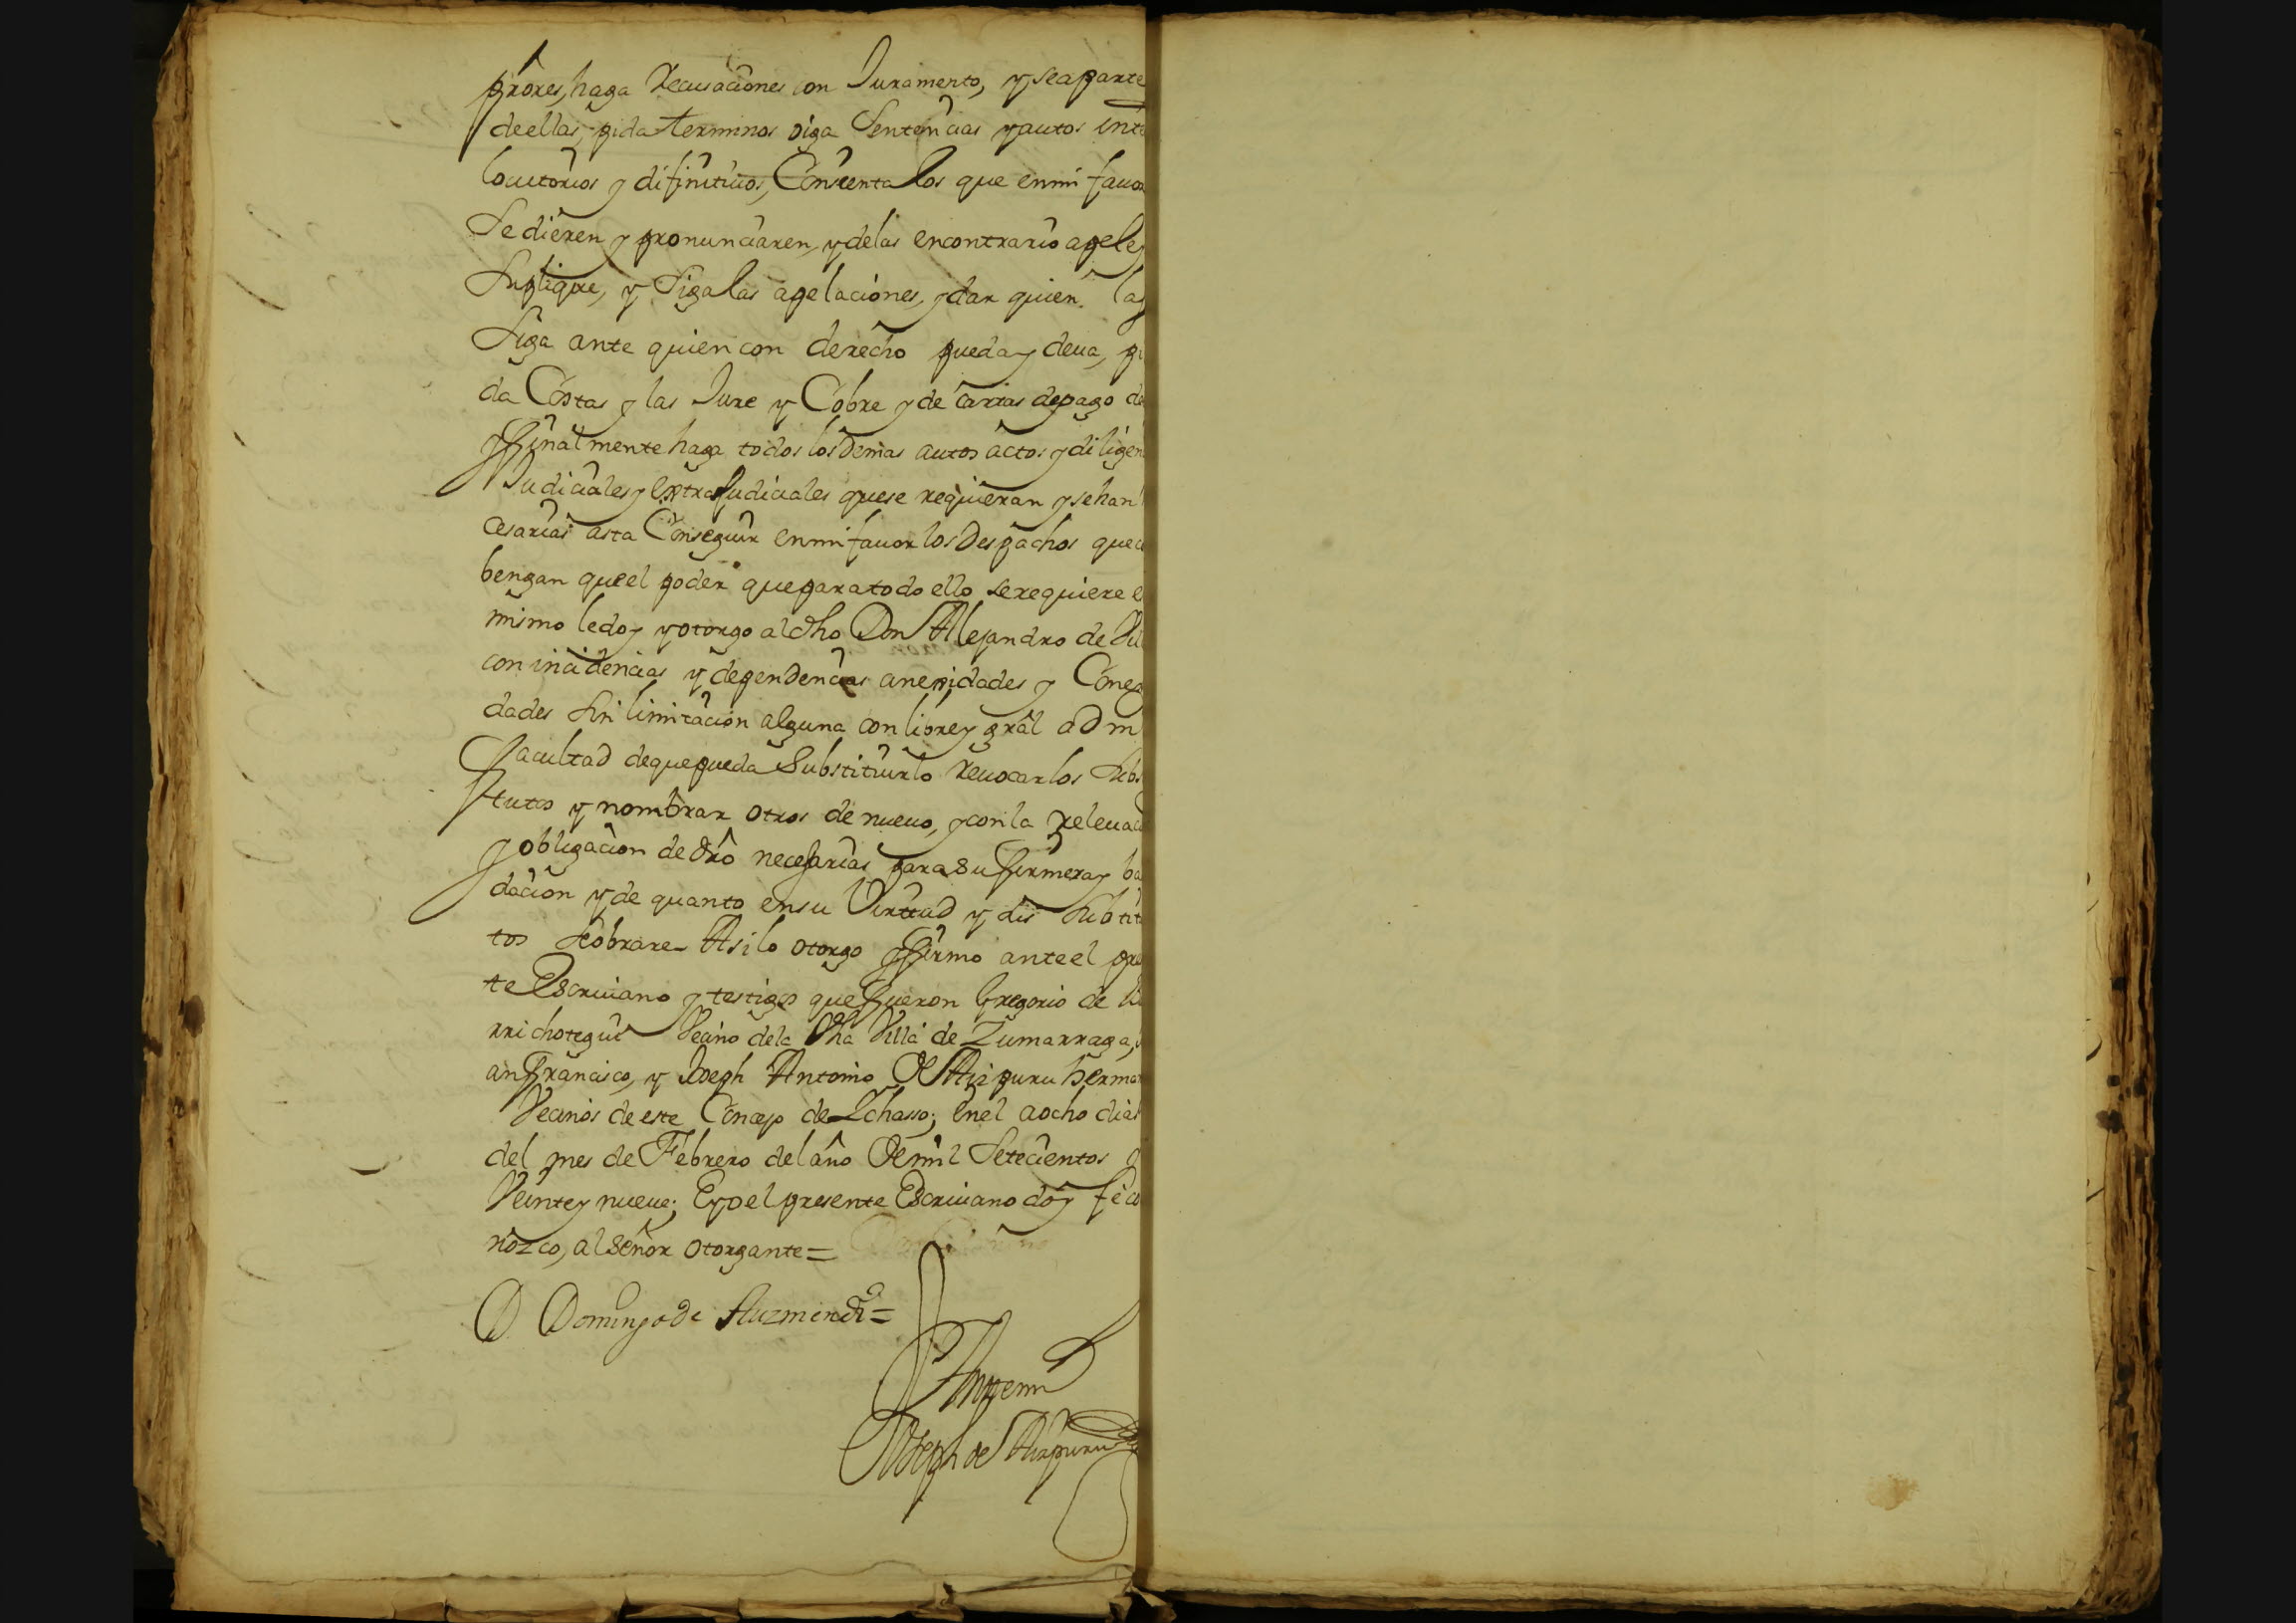 prores, haga Recusaciones con Juramento, y se aparte
de ellas, pida terminos oiga Sentencias y autos inte
locutorios y difinitiuos, Consienta los que en mi fauor
Se dieren y pronunciaren, y de las en contrario apele y
Suplique, y Siga las apelaciones, y dar quien las
Siga ante quien con derecho pueda y deua, pi
da Costas y las Jure y Cobre y de cartas de pago de
y ffinalmente haga todos los Demas autos actos y diligen
Judiciales y extraJudiciales que se requieran y se han
cesarias asta Conseguir en mi fauor los Despachos que co
bengan que el poder que para todo ello se requiere e
mismo le doy y otorgo al dho Don Alejandro de
con incidencias y dependencias anexidades y Conex
dades sin limitacion alguna con libre y gral adm
ffacultad de que pueda Substituirlo reuocar los subs
tutos y nombrar otros de nueuo, y con la releuaci
y obligacion de dro necesarias para su ffirmeza y ba
dacion y de quanto en su Virtud y dis subtit
tos se obrare Asi lo otorgo y ffirmo ante el pre
te Escriuano y testigos que ffueron Gregorio de
rrichotegui Vecino de la dha Villa de Zumarraga,
an ffrancisco, y Joseph Antonio de Aizpuru herma
Vecinos de este Concejo de Ichasso; en el a ocho dias
del mes de Febrero del año de mil Setecientos y
Veinte y nueue; E yo el presente Escriuano doy fe co
nozco, al Señor otorgante =
D. Domingo de Auzmendi =
Ante mi
Joseph de Aizpuru